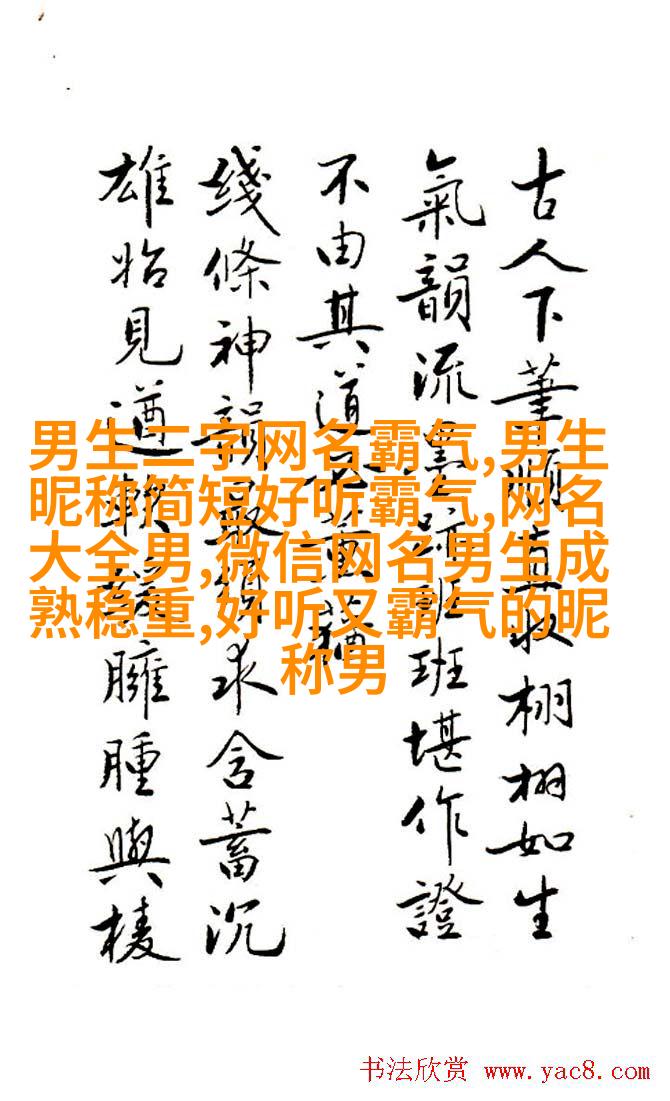 古人下筆栩栩如生
氣韻流班班堪作證
不由其道
綫條神韻最求含蓄沉
雄始見遒臃腫與棱
男生二字网名霸气,男生
昵称简短好听霸气,网名
大全男,微信网名男生成
熟稳重,好听又霸气的昵
称男
书法欣赏 www.yac8.com